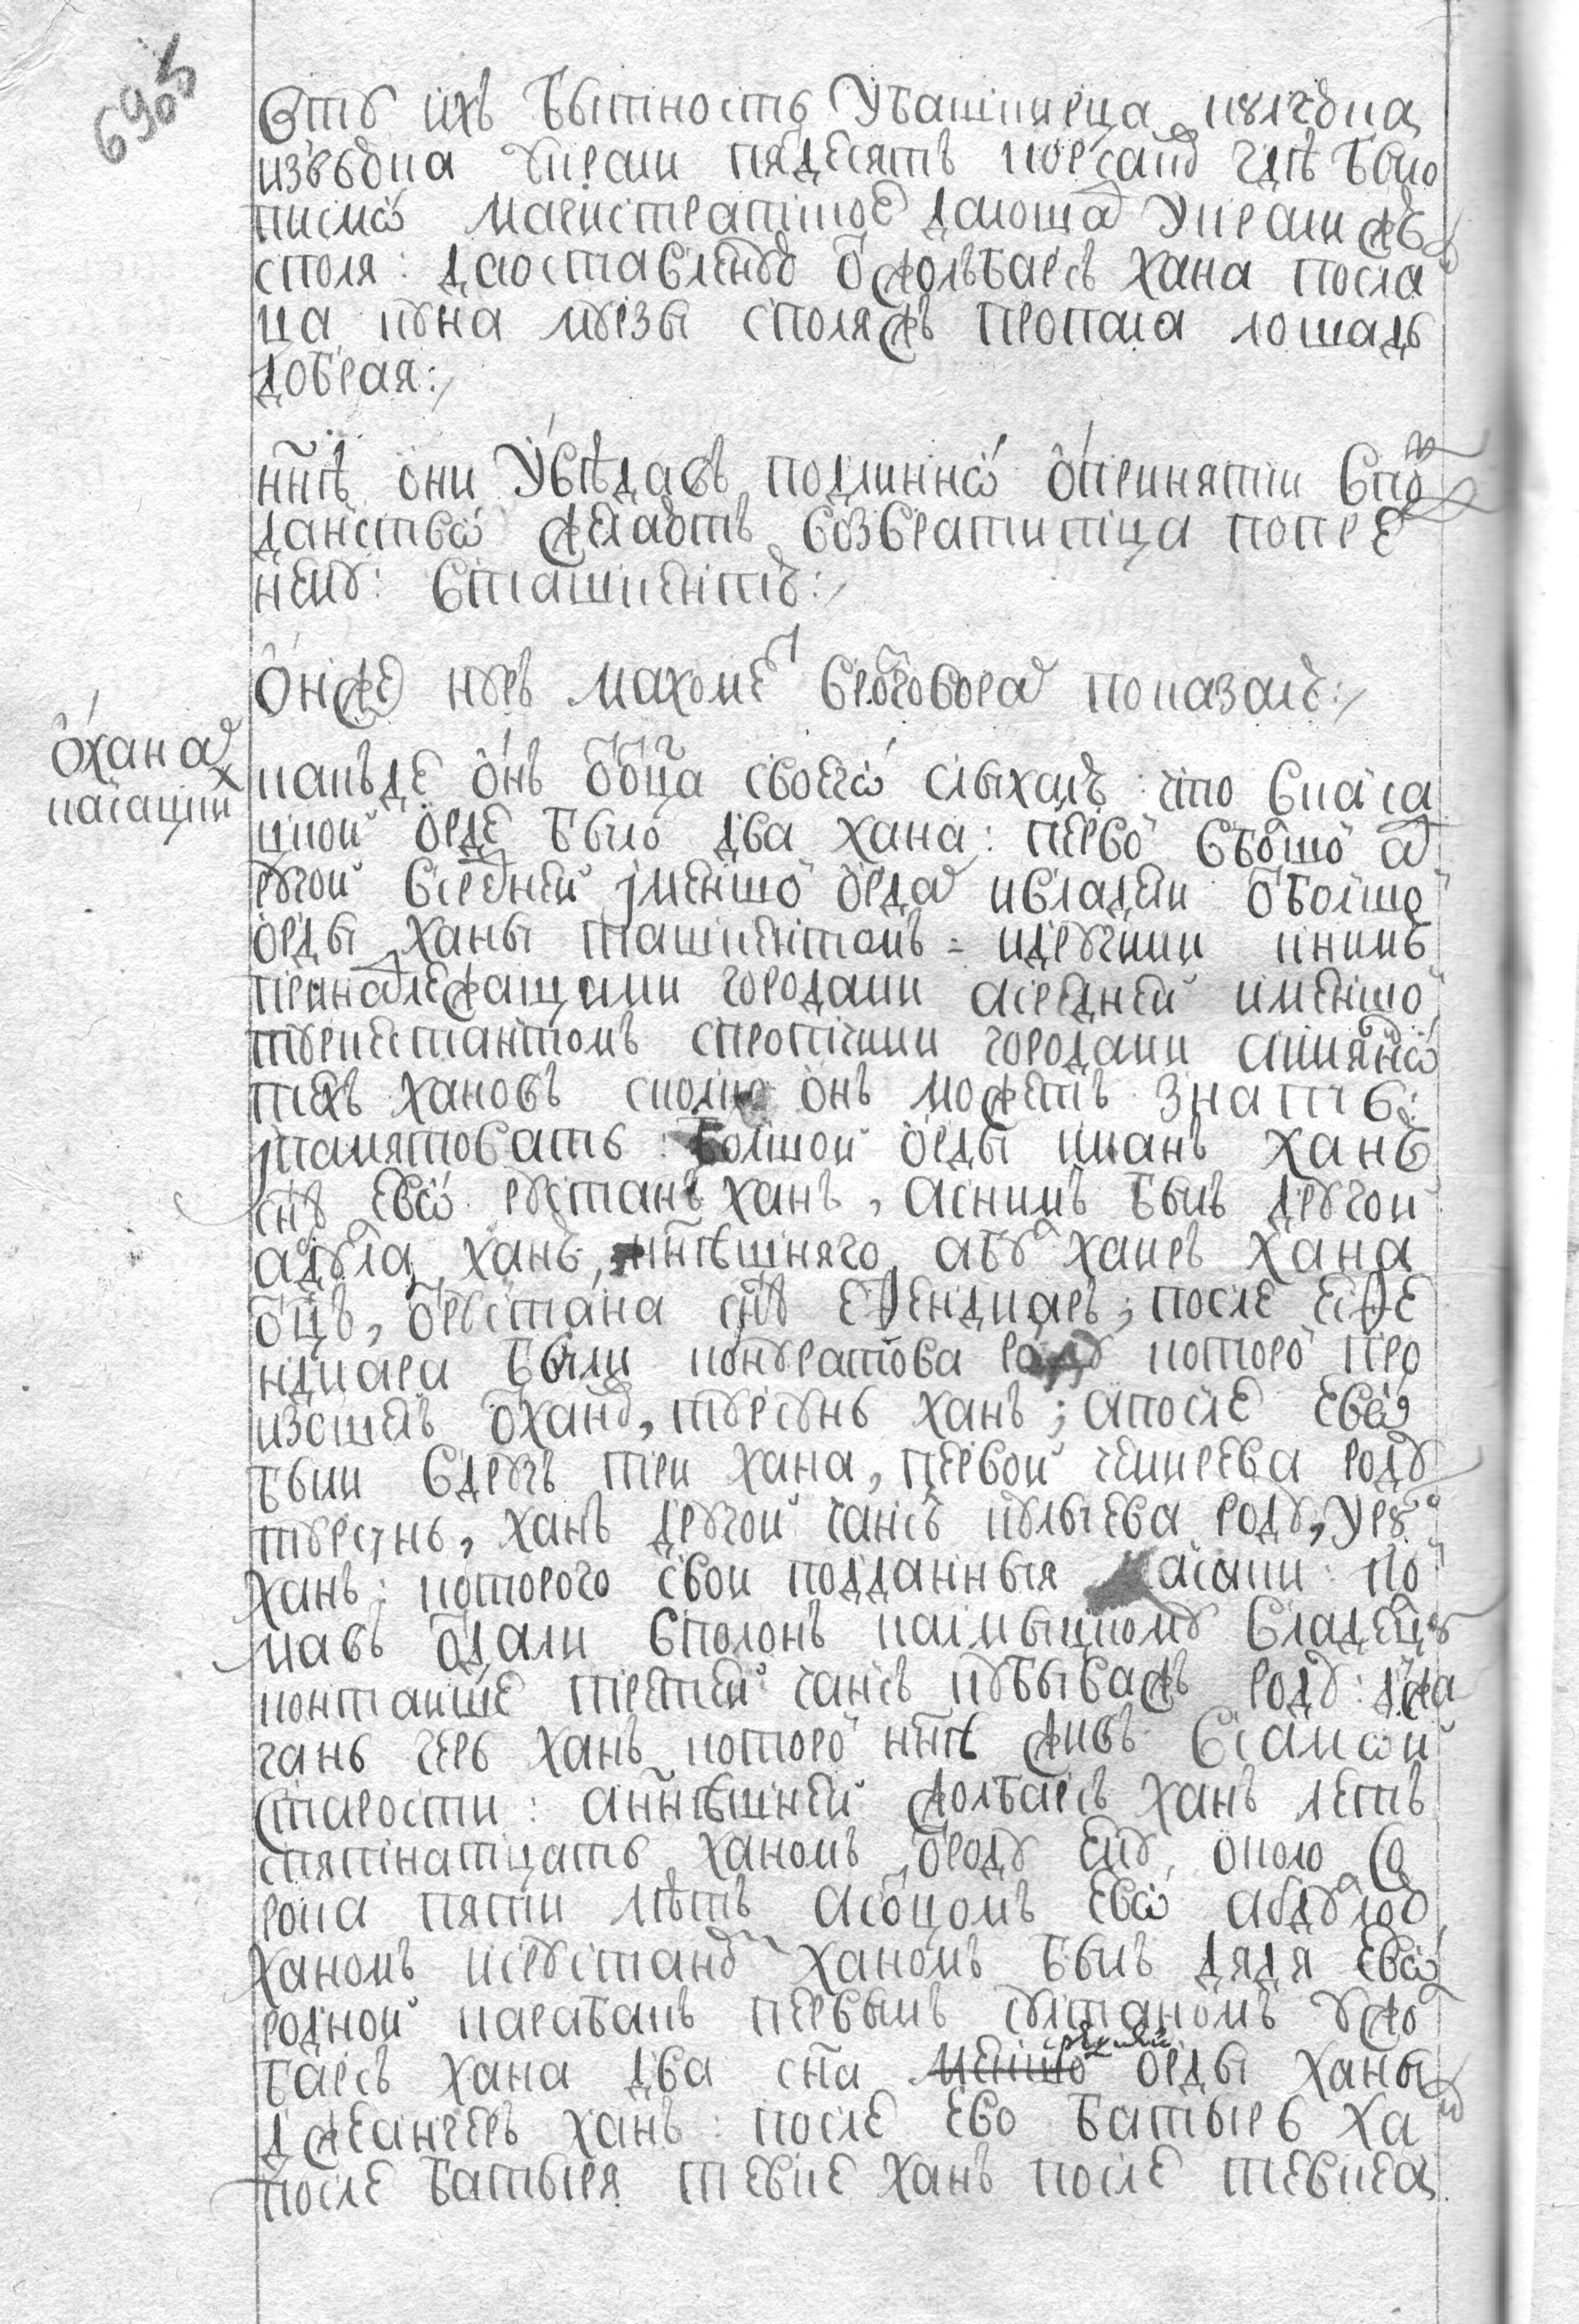 690
вту ихъ бытность у башкирца кулчука
изъ вьюка украли пядесятъ корсаков где было
писмо магистратцкое да лошад украли жъ
с поля: да оставленую от жолъбарсъ хана посла
ца кука мурзы с поля жъ пропала лошадь
добрая:
ннѣ они уведавъ подлинно о принятии в по
данство желаютъ возвратитца попре
нему: в ташкентъ:
он же нуръ махомет в розговорах показалъ:
о ханах
касацких
накъде онъ от отца своего слыхалъ: что в каса
цкой орде было два хана: перво в болшой а
другой в средней и меншой ордах и владели болшо
орды ханы ташкентомъ = и другими к нимъ
принадлежащими городами а средней и меншо
туркестантомъ с протчими городами а имянно
техъ хановъ сколко онъ можетъ знать
и памятовать: болшой орды иканъ ханъ
снъ ево рустанъ ханъ, а с нимъ былъ другой
абдула ханъ, ннешняго абулхаиръ хана
отцъ, от рустана снъ ефендиаръ; после есфе
ндиара были конуратова роду которой про
изошелъ от ханов, турсунъ ханъ; а после ево
были вдругъ три хана, первой чемирева роду
турсунъ, ханъ другой чансъ кулыева роду, уру
ханъ: которого свои подданныя касаки пой
мавъ отдали в полонъ калмыцкому владелцу
контайше третей чансъ кубыважъ роду: джа
гань геръ ханъ которой ннѣ живъ в самой
старости: а ннешней жолбарсъ ханъ летъ
с пятнатцать ханомъ, от роду ему, около со
рока пяти лѣтъ а с отцомъ ево абдулою
ханомъ и с рустаном ханомъ былъ дядя ево
родной карабакъ первымъ султаномъ у жо
барсъ хана два сна средней орды ханы
джеангеръ ханъ: после ево батырь ха
после батыря тевке ханъ после тевкеа